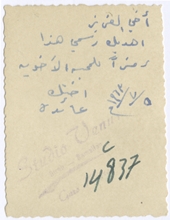 أخي العزيز
اهديك رسمي هذا
رمزاً للمحبة الأخوية
اختك
عائدة
Studio Venus
C
14837